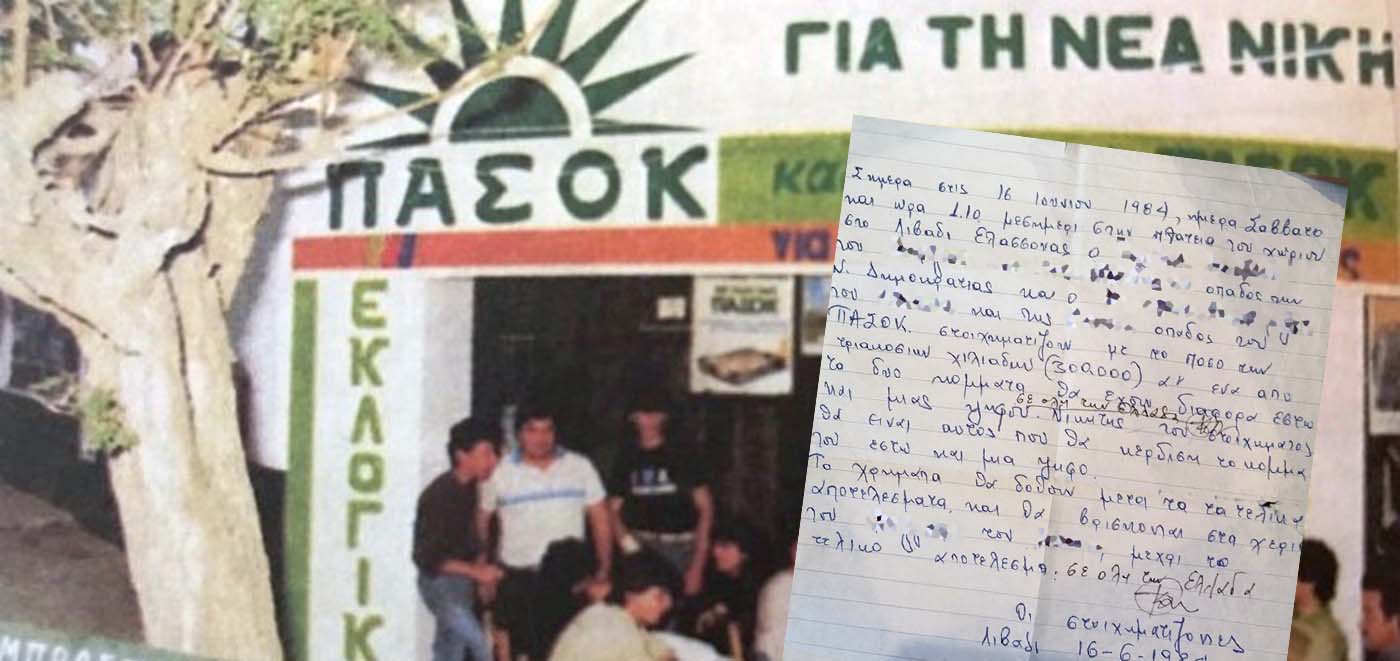 ΓΙΑ ΤΗ ΝΕΑ ΝΙΚΗ
ΠΑΣΟΚ
και
ΠΑΣΟΚ
για
ΕΚΛΟΓΙΚ
ΠΑΣΟΚ
Σημερα στις 16 Ιουνιου 1984, ημερα Σαββατο
και ωρα 1.10 μεσημερι στην πλατεια του χωριου
στο Λιβαδι Ελασσονας ο
του οπαδος της
Ν. Δημοκρατιας και ο
του και της οπαδος του
ΠΑΣΟΚ. στοιχηματιζουν με το ποσο των
τριακοσιων χιλιαδων (300.000) αν ενα απο
το δυο κομματα θα εχουν διαφορα εστω
σε ολη την Ελλαδα
και μιας ψηφου. Νικητης του στοιχηματος
θα ειναι αυτος που θα κερδιση το κομμα
του εστω και μια ψηφο.
Τα χρηματα θα δοθουν μετα τα τα τελικα
αποτελεσματα, και θα βρισκονται στα χερια
του του , μεχρι το
τελικο αποτελεσμα. σε ολη την Ελλαδα
Οι στοιχηματιζοντες
Λιβαδι 16-6-198